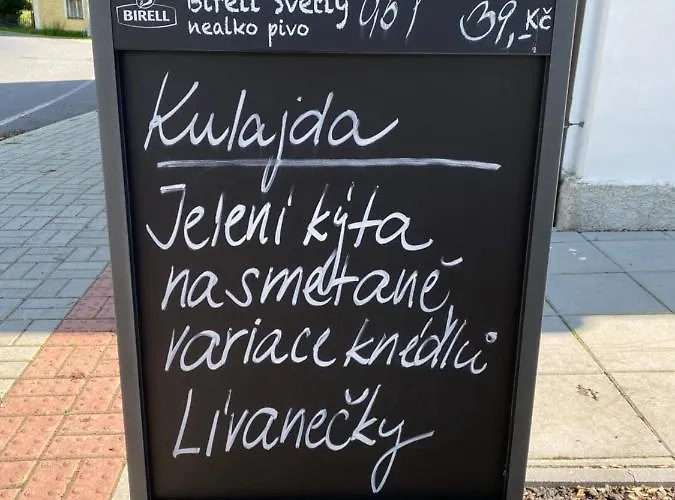 BIRELL
Birell světlý 0,5l 39,- Kč
nealko pivo
Kulajda
Jelení kýta
na smetaně,
variace knedlíků
Lívanečky